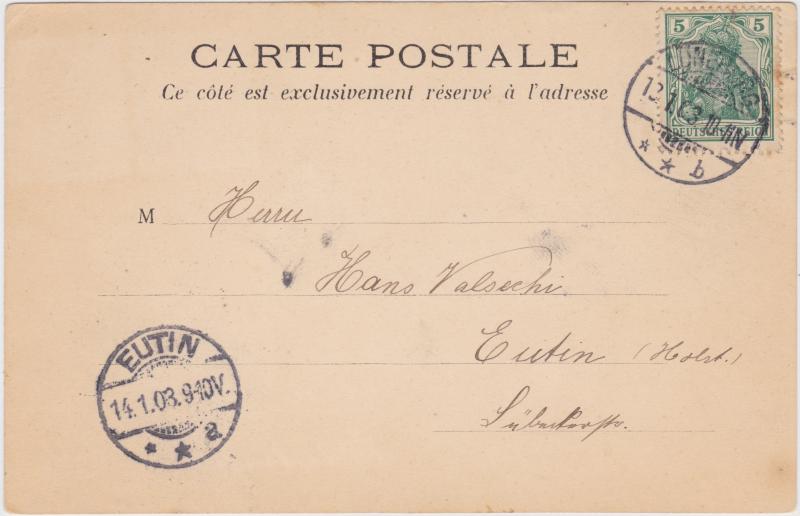 CARTE POSTALE
Ce côté est exclusivement réservé à l'adresse
5 5
DEUTSCHES REICH
b
M Herrn
Hans Valsechi
Eutin (Holst.)
Lübeckerstr.
EUTIN
14.1.03.9-10V.
a